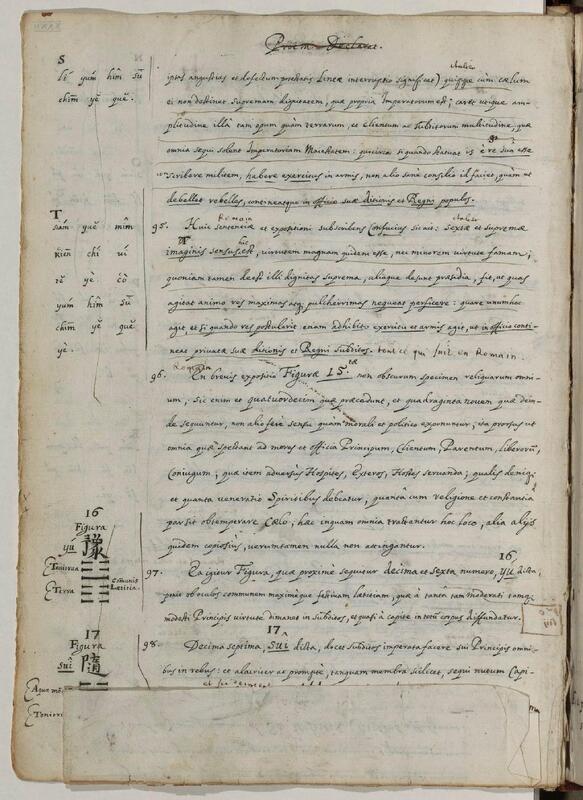 Proëm. Declarat.
S
lé yúm hîm sū
chīm yè qué.
Italico
ipsas angustias et defectum potestatis Lineæ interruptio significat) quippe cùm cælum
ei non destinet supremam dignitatem, quæ propria Imperatorum est; caret utique am-
plitudine illâ tam opum quàm terrarum, et Clientum ac Subditorum multitudine, quæ
omnia sequi solent Imperatoriam Maiestatem: quocirca si quando statuat is è re suâ esse
scribere militem, habere exercitus in armis, non alio sanè consilio id faciet, quàm ut
debellet rebelles, contineatque in officio suæ ditionis et Regni populos.
T
siám quĕ mîm
kiēn chí ví
tĕ yè. cò
yúm hîm sū
chīm yĕ quĕ
yè.
Romain
Italico
95. Huic sententiæ et expositioni subscribens Confucius sic ait: Sextæ et supremæ
imaginis sensus hic est, virtutem magnam quidem esse, nec minorem virtutis famam;
quoniam tamen deest illi dignitas suprema, aliaque desunt præsidia, fit, ut quas
agitat animo res maximas atq; pulcherrimas nequeat perficere: quare unum hoc
agit et si quando res postulârit etiam adhibitis exercitu et armis agit, ut in officio conti-
neat privatæ suæ ditionis et Regni subditos. tout ce qui suit en Romain.
Romain
96. En brevis expositio Figuræ 15.tæ non obscurum specimen reliquarum omni-
um, sic enim et quatuordecim quæ præcedunt, et quadraginta novem quæ dein-
de sequuntur, non alio ferè sensu quàm morali et politico exponuntur; ita prorsus ut
omnia quæ spectant ad mores et officia Principum, Clientum, Parentum, Liberorū,
Coniugum; quæ item adversùs Hospites, Exteros, Hostes servanda; qualis deniq;
et quanta veneratio Spiritibus debeatur, quantâ cum religione et constantia
par sit obtemperare Cælo; hæc inquam omnia tractantur hoc loco, alia alijs
quidem copiosiùs, verumtamen nulla non attinguntur.
16
Figura
yu 豫
Tonitrua
Terra
Comunis
Lætitia
16
97. Ea igitur Figura, quæ proximè sequitur decima et sexta numero, yu dicta,
ponit ob oculos communem maximèque festivam lætitiam, quæ à tantâ tam moderati tamq;
modesti Principis virtute dimanet in subditos, et quasi à capite in totū corpus diffundatur.
17
Figura
suî 隨
17
98. Decima septima, suî dicta, docet subditos imperata facere sui Principis omni-
bus in rebus: et alacriter ac promptè, tanquam membra scilicet, sequi nutum Capi-